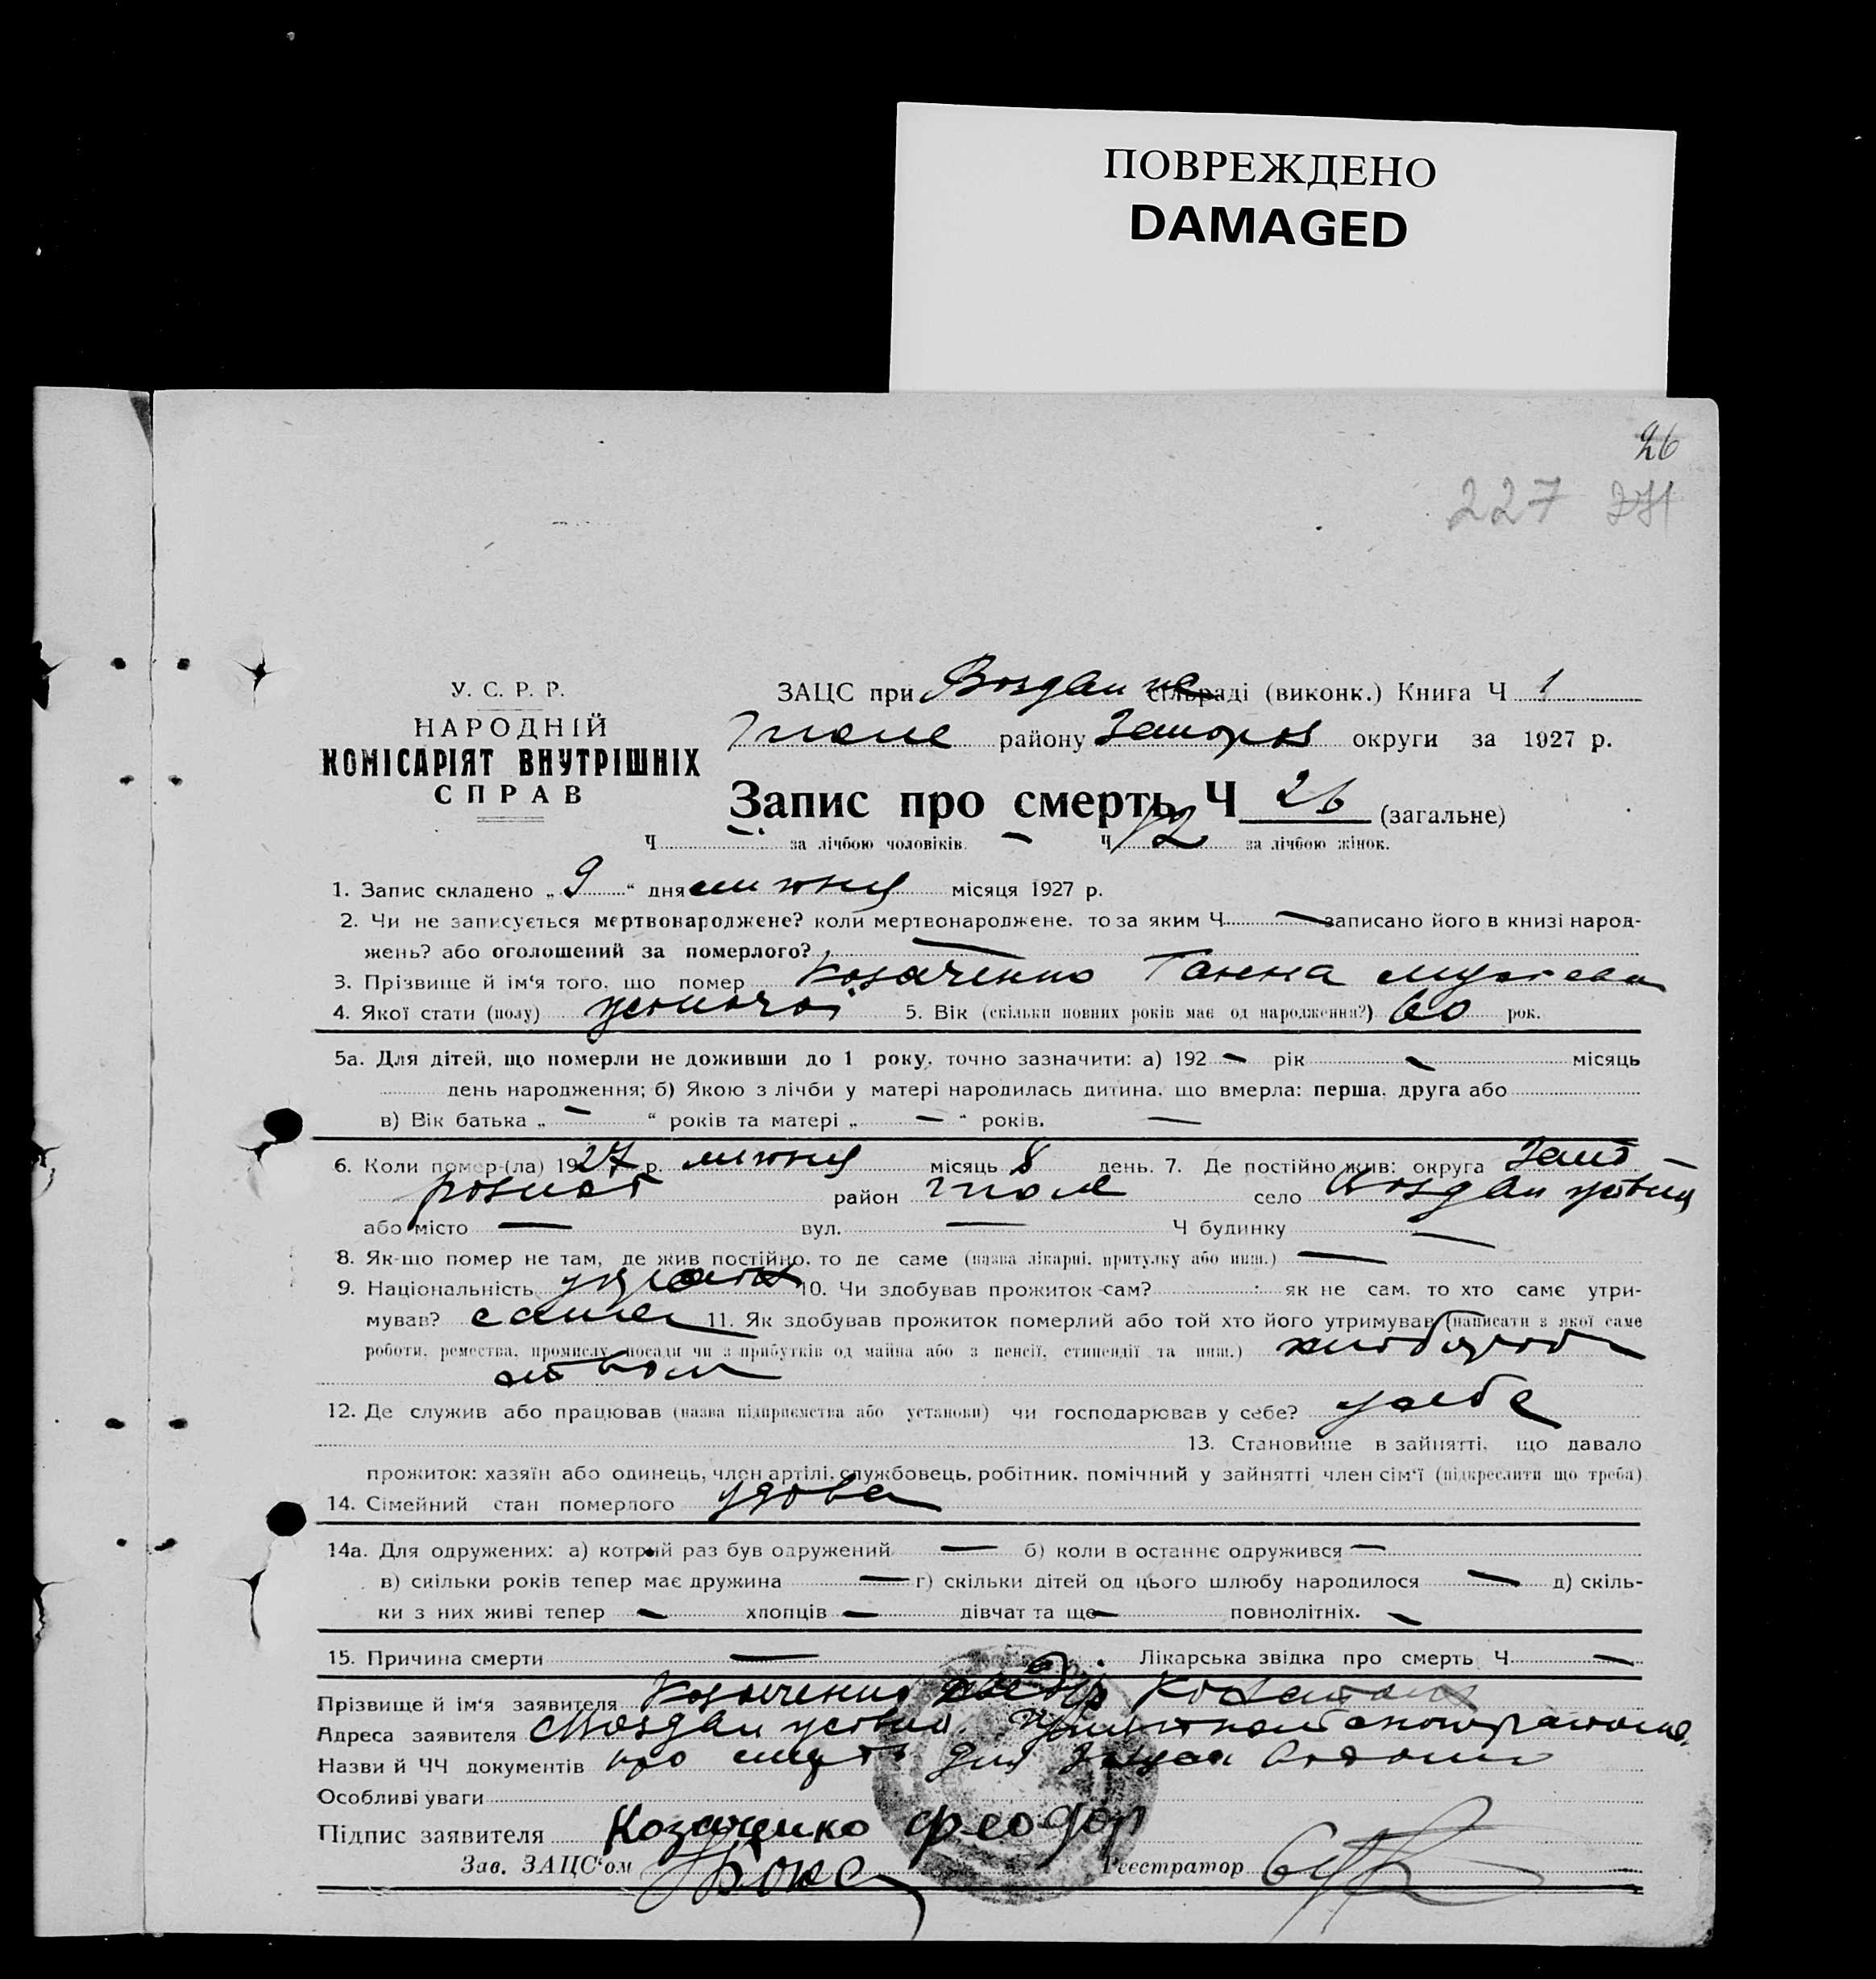 ПОВРЕЖДЕНО
DAMAGED
26
227
У. С. Р. Р.
НАРОДНІЙ
КОМІСАРІЯТ ВНУТРІШНІХ
СПРАВ
ЗАЦС при сільраді (виконк.) Книга Ч 1
району округи за 1927 р.
Запис про смерть Ч 26 (загальне)
Ч — за лічбою чоловіків. — Ч 12 за лічбою жінок.
1. Запис складено „ 9 “ дня липня місяця 1927 р.
2. Чи не записується мертвонароджене? коли мертвонароджене, то за яким Ч — записано його в книзі народ-
жень? або оголошений за померлого? —
3. Прізвище й ім‘я того, що помер Козаченко Ганна
4. Якої стати (полу) жіночої 5. Вік (скільки повних років має од народження?) 60 рок.
5а. Для дітей, що померли не доживши до 1 року, точно зазначити: а) 192 — рік — місяць
день народження; б) Якою з лічби у матері народилась дитина, що вмерла: перша, друга або
в) Вік батька „ — “ років та матері „ — “ років. —
6. Коли помер-(ла) 1927 р. липня місяць 8 день. 7. Де постійно жив: округа
район село
або місто — вул. — Ч будинку —
8. Як-що помер не там, де жив постійно, то де саме (назва лікарні, притулку або инш.) —
9. Національність 10. Чи здобував прожиток сам? як не сам, то хто саме утри-
мував? сама 11. Як здобував прожиток померлий або той хто його утримував (написати з якої саме
роботи, ремества, промислу, посади чи з прибутків од майна або з пенсії, стипендії та инш.) хлібороб
ством
12. Де служив або працював (назва підприємства або установи) чи господарював у себе? у себе
13. Становище в зайнятті, що давало
прожиток: хазяїн або одинець, член артілі, службовець, робітник, помічний у зайнятті член сім‘ї (підкреслити що треба)
14. Сімейний стан померлого удова
14а. Для одружених: а) котрий раз був одружений — б) коли в останнє одружився —
в) скільки років тепер має дружина — г) скільки дітей од цього шлюбу народилося — д) скіль-
ки з них живі тепер — хлопців — дівчат та ще — повнолітніх. —
15. Причина смерти — Лікарська звідка про смерть Ч —
Прізвище й ім‘я заявителя Козаченко
Адреса заявителя
Назви й ЧЧ документів про смерть для
Особливі уваги
Підпис заявителя Козаченко Феодор
Зав. ЗАЦС‘ом Реєстратор